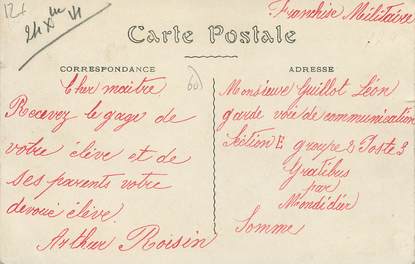 Franchise Militaire
Carte Postale
CORRESPONDANCE
Cher maitre
Recevez le gage de
votre élève et de
ses parents votre
devoué élève.
Arthur Roisin
ADRESSE
Monsieur Guillot Léon
garde voie de communication
Section E groupe 2 Poste 3
Gratibus
par
Mondidier
Somme